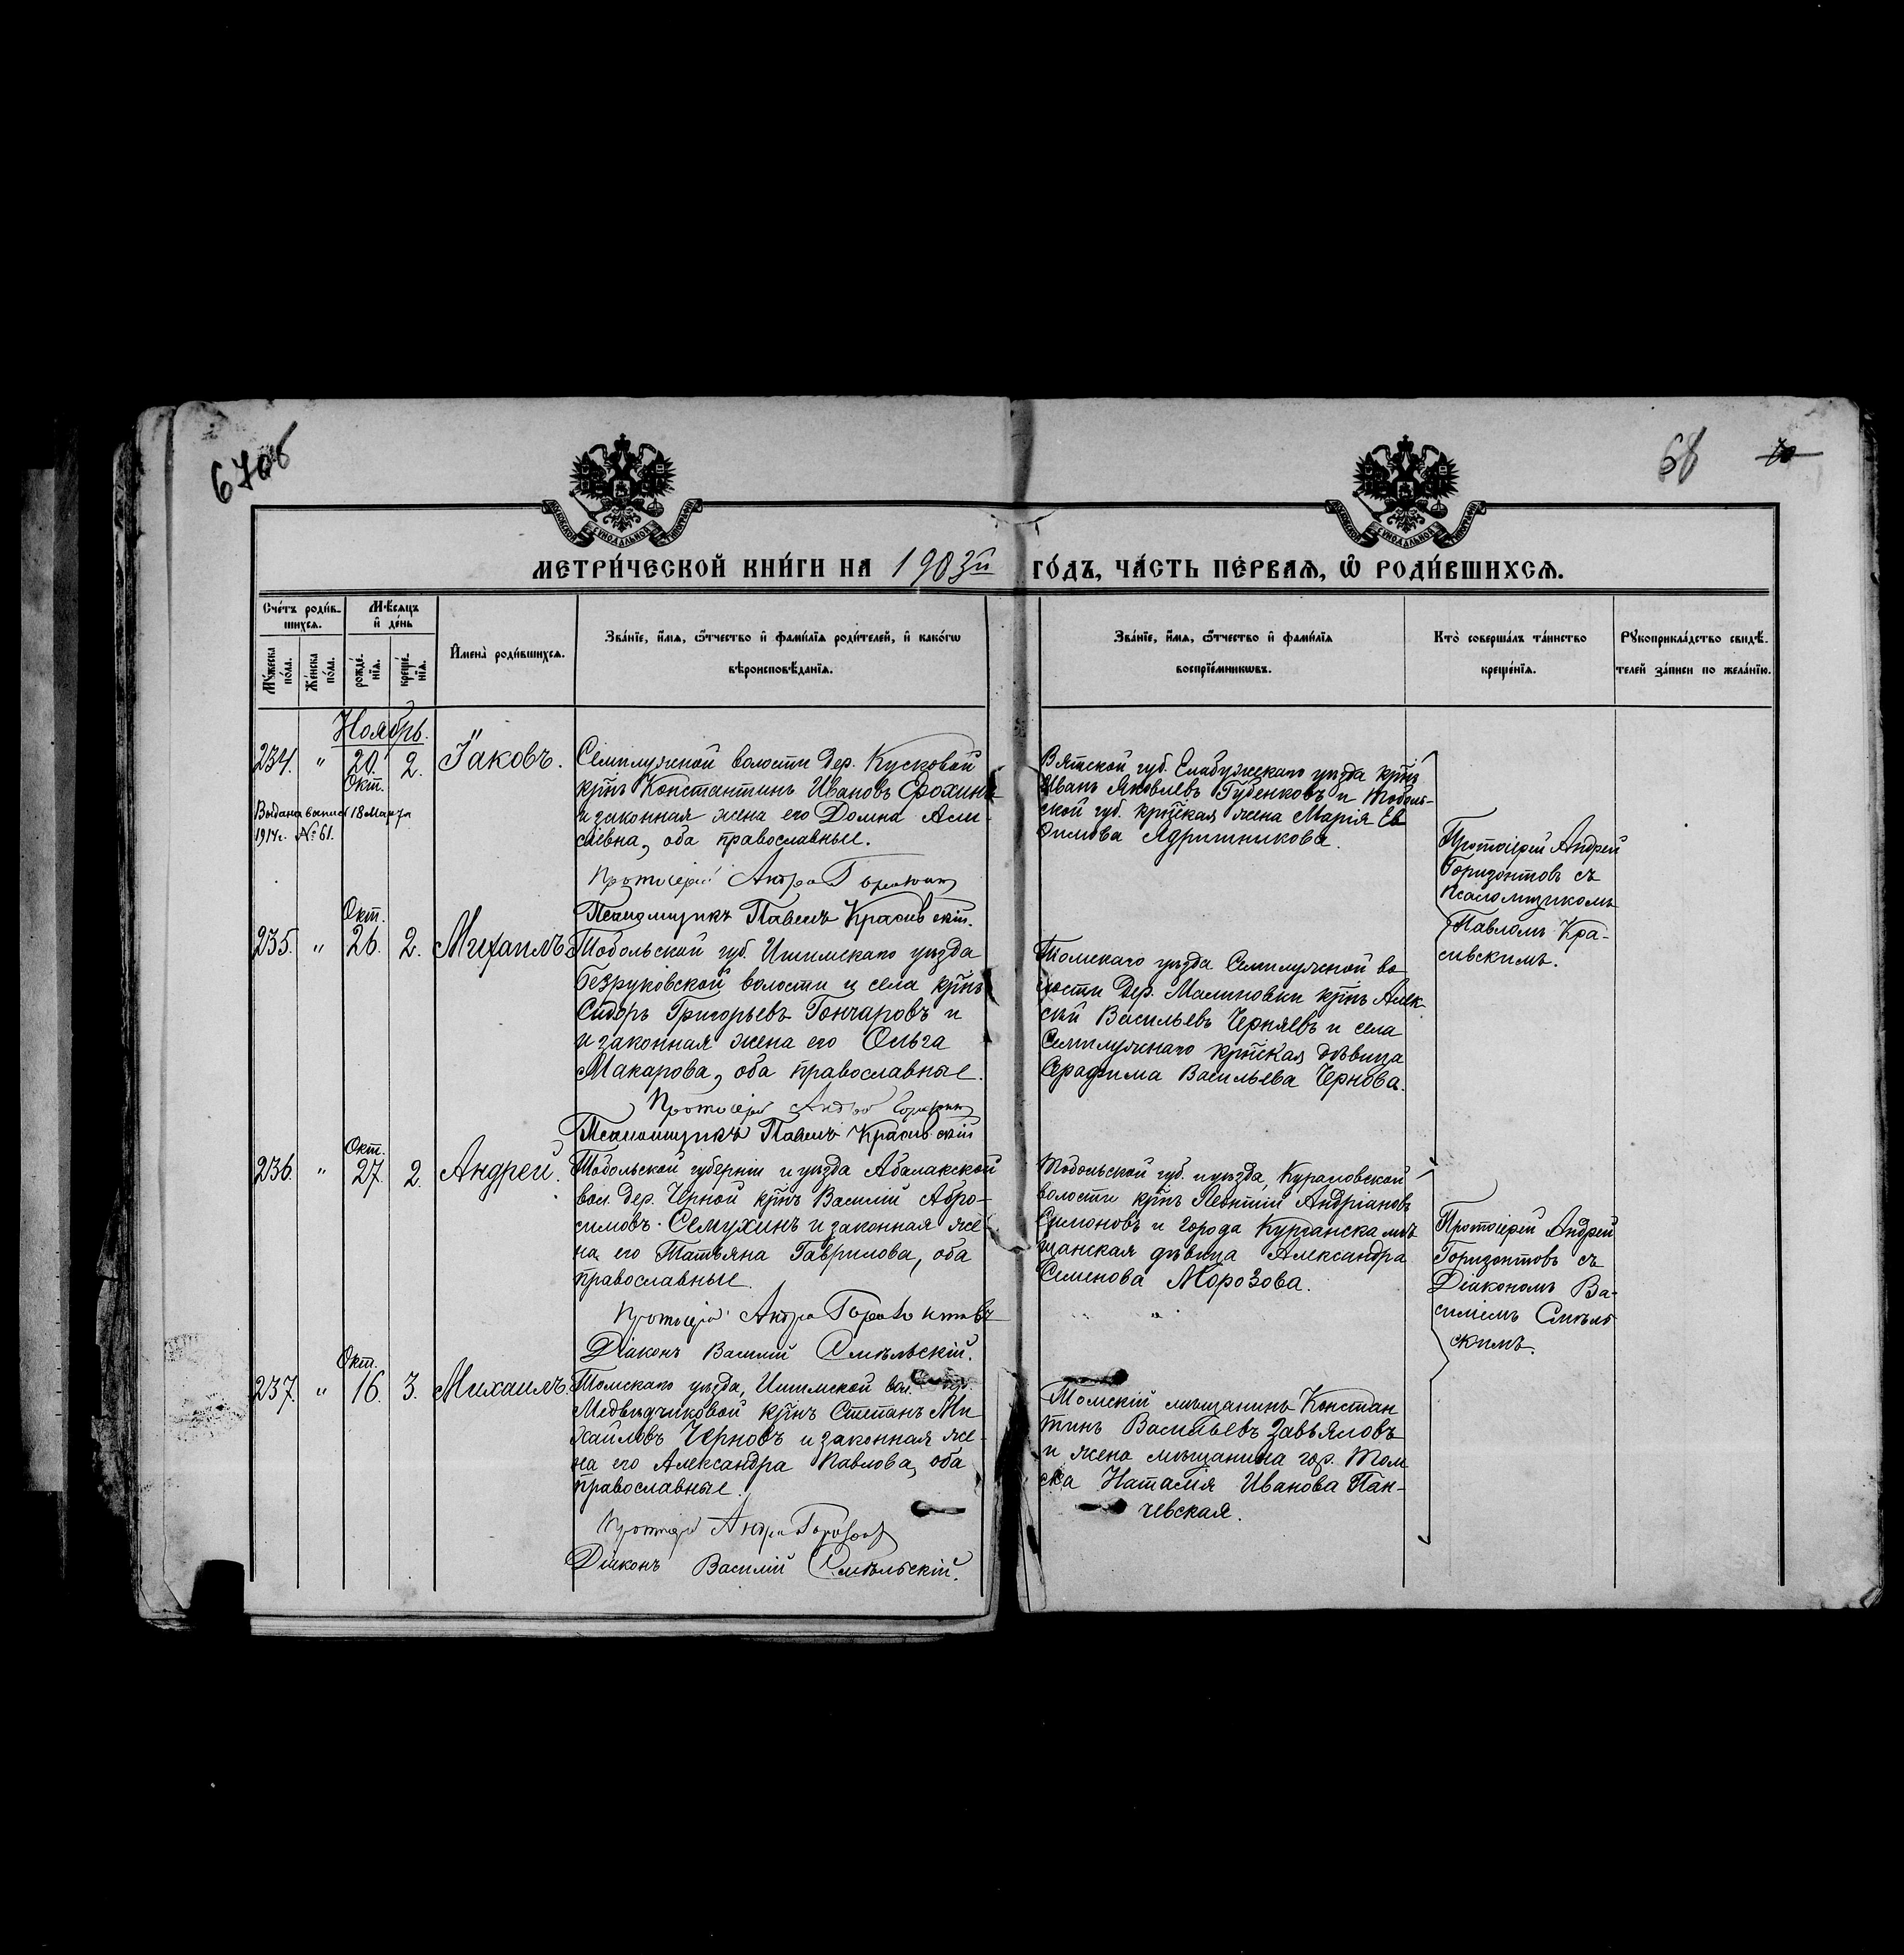 67об
68
70
МОСКОВСКОЙ СѴНОДАЛЬНОЙ ТИПОГРАФІИ
МОСКОВСКОЙ СѴНОДАЛЬНОЙ ТИПОГРАФІИ
МЕТРИ́ЧЕСКОЙ КНИ́ГИ НА 1903й ГО́ДЪ, ЧА́СТЬ ПЕ́РВАѦ, Ѽ РОДИ́ВШИХСѦ.
Сче́тъ роди́в-
шихсѧ.
Мꙋ́жеска
по́ла.
Же́нска
по́ла.
Мѣ́сѧцъ
и҆ де́нь
рожде́-
нїѧ.
креще́-
нїѧ.
И҆мена̀ роди́вшихсѧ.
Зва́нїе, и҆́мѧ, ѻ҆́тчество и҆ фами́лїѧ роди́телей, и҆ како́гѡ
вѣроисповѣ́данїѧ.
Зва́нїе, и҆́мѧ, ѻ҆́тчество и҆ фами́лїѧ
воспрїе́мникѡвъ.
Кто̀ соверша́лъ та́инство
креще́нїѧ.
Рꙋкоприкла́дство свидѣ́-
телей за́писи по жела́нїю.
Ноябрь.
234. " 20. Окт. 2. Іаковъ.
Выдана выпись 18 Марта
1914г. № 61.
Семилужной волости дер. Кусковой
крнъ Константинъ Ивановъ Фохинъ
и законная жена его Домна Али-
сіевна, оба православные.
Протоіерей Андрей
Псаломщикъ Павелъ Красивскій.
Вятской губ. Елабужскаго уѣзда крнъ
Иванъ Яковлевъ Губенковъ и Тоболь-
ской губ. крнская жена Марія Ев
Ядришникова.
Протоіерей Андрей
Горизонтовъ съ
Псаломщикомъ
Павломъ Кра-
сивскимъ.
235. " Окт. 26. 2. Михаилъ
Тобольской губ. Ишимскаго уѣзда
Безруковской волости и села крнъ
Сидоръ Григорьевъ Гончаровъ и
и законная жена его Ольга
Макарова, оба православные.
Протоіерей Андрей
Псаломщикъ Павелъ Красивскій
Томскаго уѣзда Семилужной во
лости дер. Малиновки крнъ Алек-
сѣй Васильевъ Черняевъ и села
Семилужнаго крнская дѣвица
Серафима Васильева Чернова.
236. " Окт. 27. 2. Андрей.
Тобольской губерніи и уѣзда Абалакской
вол. дер. Черной крнъ Василій Абро-
симовъ Семухинъ и законная же-
на его Татьяна Гаврилова, оба
православные
Протоіерей Андрей Горизонтовъ
Діаконъ Василій Смѣльскій.
Тобольской губ. и уѣзда, Кугаловской
волости крнъ Леонтій Андріановъ
Симоновъ и города Курганска мѣ-
щанская дѣвица Александра
Семенова Морозова.
Протоіерей Андрей
Горизонтовъ съ
Діакономъ Ва-
силіемъ Смѣль
скимъ.
237. " Окт. 16. 3. Михаилъ.
Томскаго уѣзда, Ишимской вол. дер.
Медвѣдчиковой крнъ Степанъ Ми
хаиловъ Черновъ и законная же-
на его Александра Павлова, оба
православные.
Протоіерей Андрей
Діаконъ Василій Смѣльскій.
Томскій мѣщанинъ Констан
тинъ Васильевъ Завьяловъ
и жена мѣщанина гор. Том
ска Наталія Иванова Пан-
чевская.